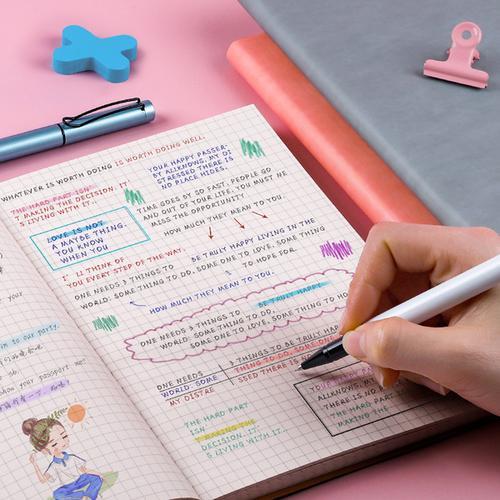 your
im to our party.
show your passport me?
WHATEVER IS WORTH DOING IS WORTH DOING WELL.
THE HARD PART ISN'
T MAKING THE DECISION. IT
S LIVING WITH IT..
YOUR HAPPY PASSER-
BY ALLKNOWS, MY DI
STRESSED THERE IS
NO PLACE HIDES.
LOVE IS NOT
A MAYBE THING.
YOU KNOW
WHEN YOU
TIME GOES BY SO FAST, PEOPLE GO
AND OUT OF YOUR LIFE. YOU MUST NE
MISS THE OPPORTUNITY
HOW MUCH THEY MEAN TO YOU
I' LL THINK OF
YOU EVERY STEP OF THE WAY.
BE TRULY HAPPY LIVING IN THE
ONE NEEDS 3 THINGS TO
WORLD: SOME THING TO DO, SOME ONE TO LOVE, SOME THING
TO HOPE FOR.
HOW MUCH THEY MEAN TO YOU.
ONE NEEDS 3 THINGS TO BE TRULY HAPPY
WORLD: SOME THING TO DO, SOME ONE TO LOVE, SOME THING TO HO
ONE NEEDS 3 THINGS TO BE TRULY HAP
WORLD: SOME THING TO DO, SOME ONE
MY DISTRE SSED THERE IS NO
ALLKNOWS, M
THERE IS NO
THE HARD PART
MAKING THE
THE HARD PART
ISN
T MAKING THE
DECISION. IT
S LIVING WITH IT...